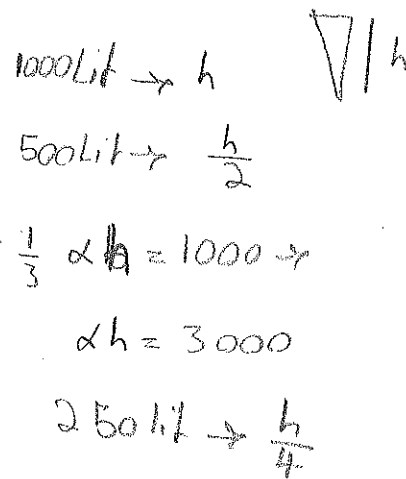 1000Lit → h
h
500Lit → h/2
1/3 αh = 1000 →
αh = 3000
250lit → h/4